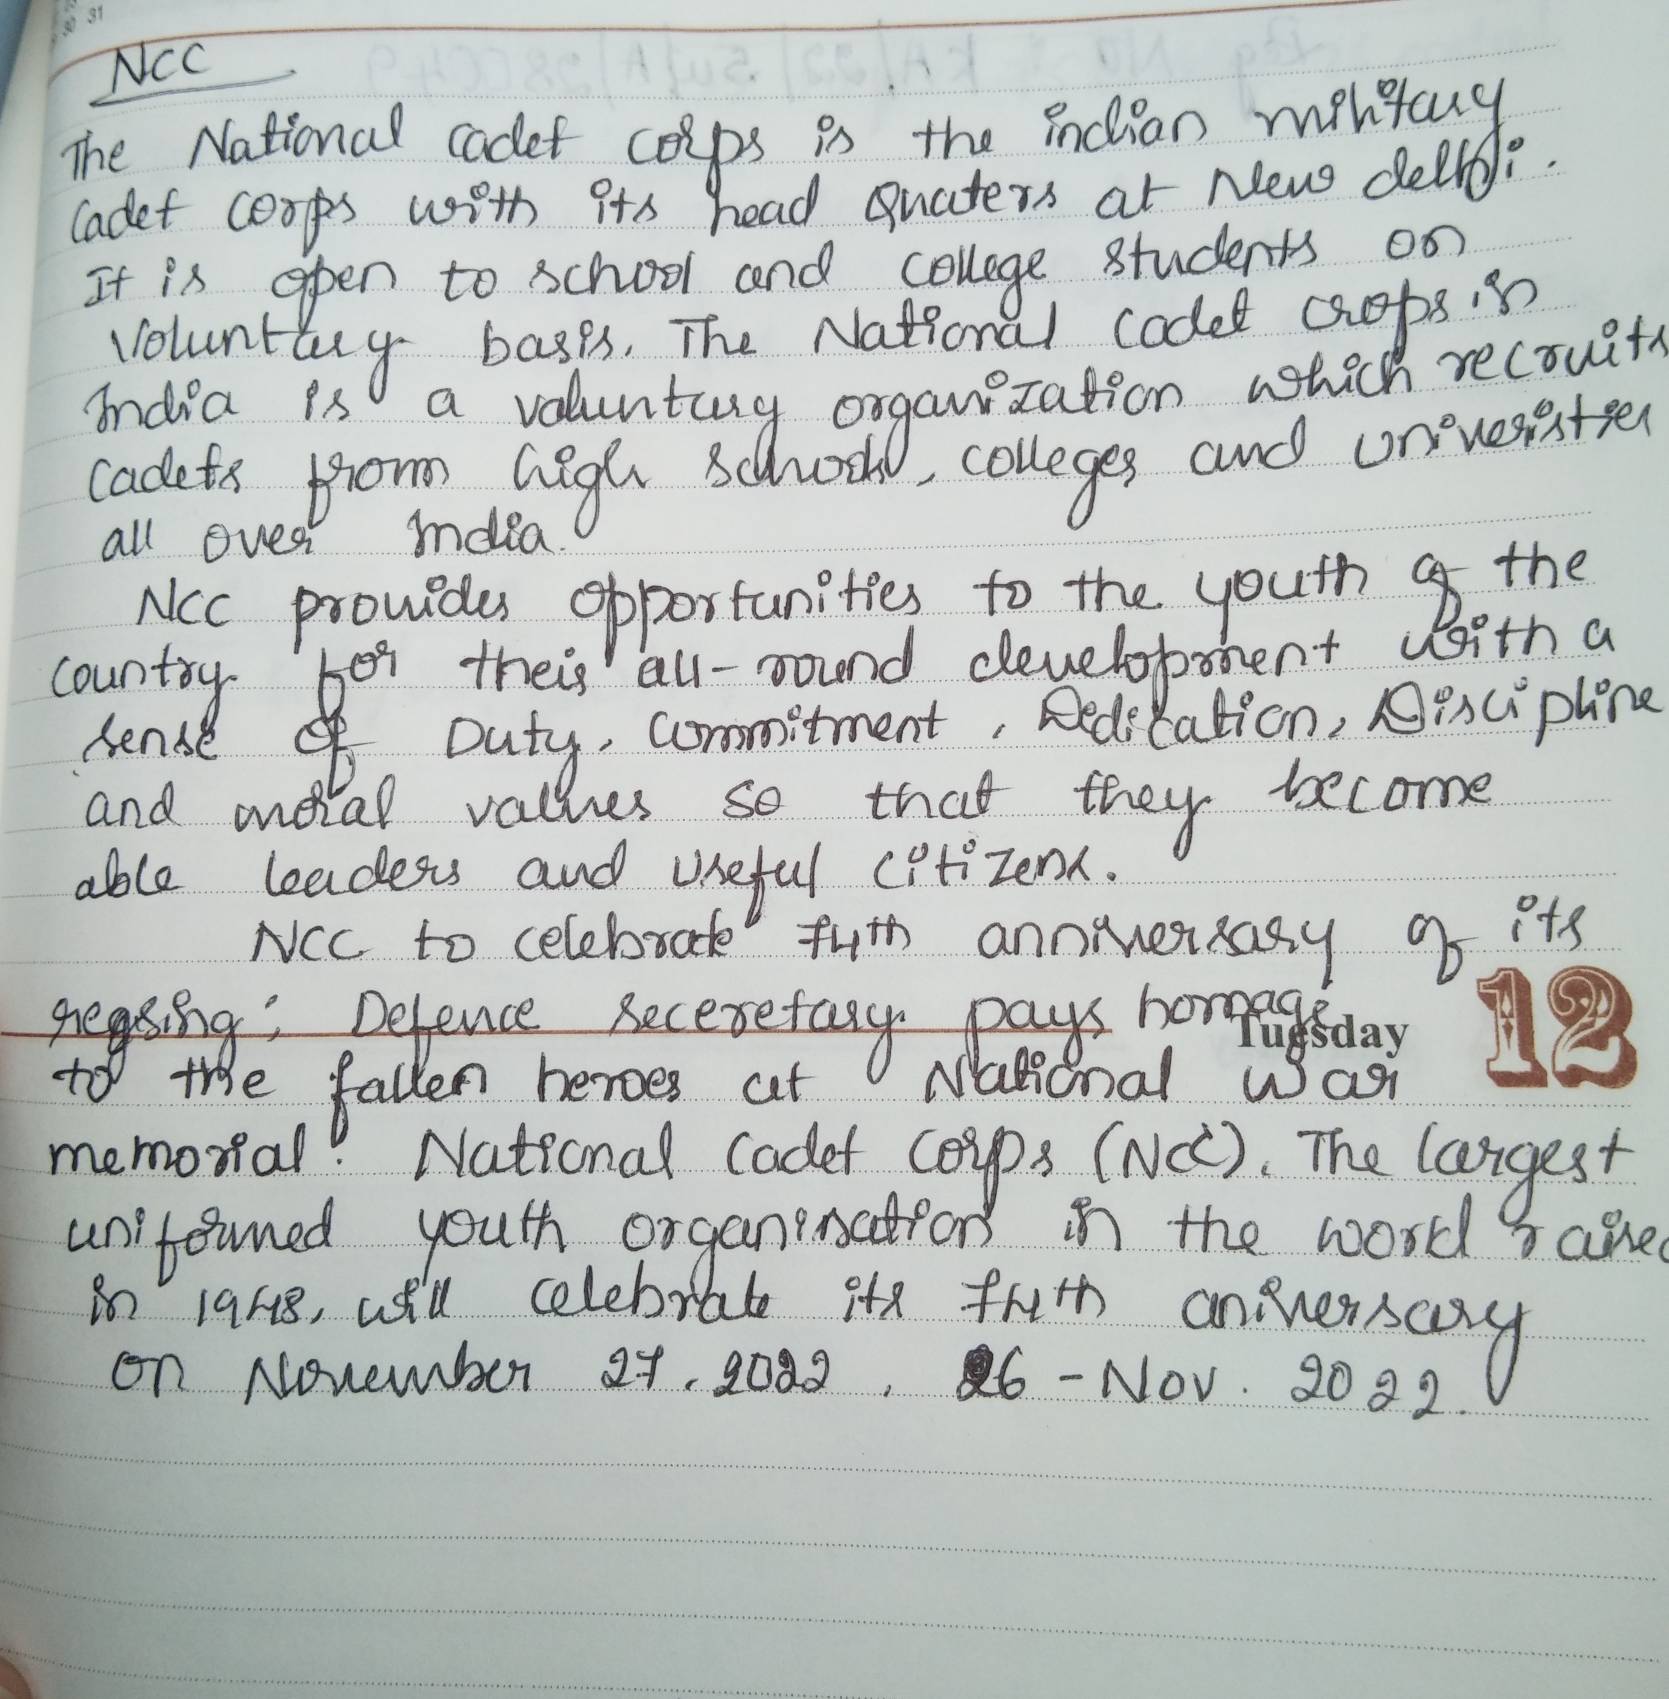 31
NCC
The National cadet corps is the indian military
Cadet corps with its head Quaters at New delhi.
It is open to school and college students on
Voluntary basis. The National Cadet crops in
India is a voluntary organization which recruits
Cadets from high schools, colleges and univeristies
all over India.
NCC provides opportunities to the youth of the
country for their all-round development with a
sense of Duty, Commitment, Dedication, Discipline
and moral values so that they become
able leaders and useful citizens.
NCC to celebrate 74th anniversary of its
Defence Seceretary pays homage
Tuesday 12
to the fallen heroes at National War
memorial. National Cadet Corps (NCC). The largest
uniformed youth organisation in the world raised
in 1948, will celebrate its 74th aniversary
on November 27, 2022, 26-Nov. 2022.